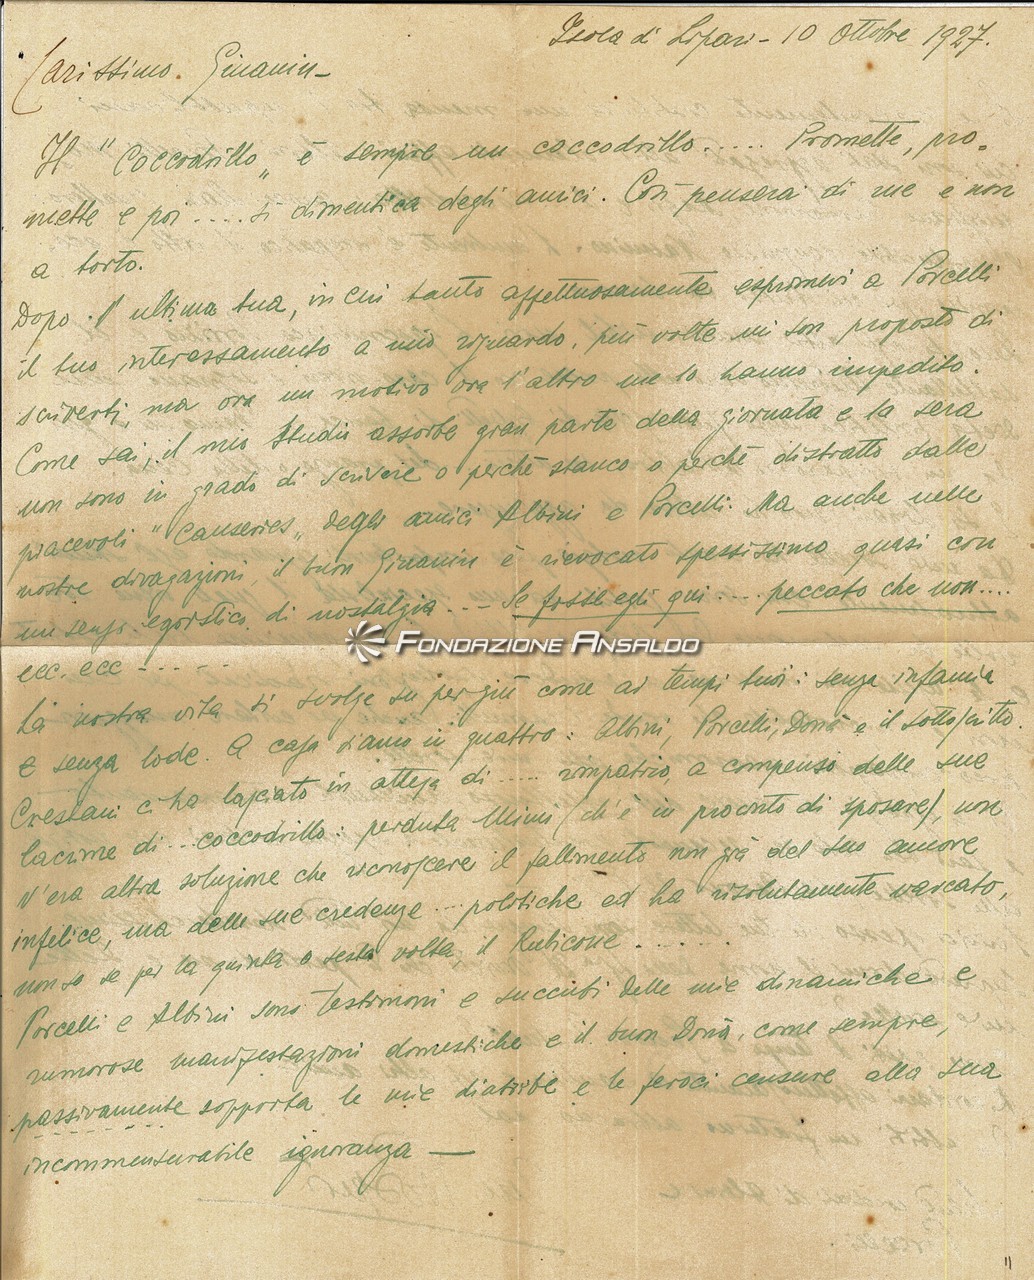 Isola di Lipari - 10 Ottobre 1927.
Carissimo Ginanin -
Il "Coccodrillo„ è sempre un coccodrillo ..... Promette, pro-
mette e poi ..... si dimentica degli amici. Così penserai di me e non
a torto.
Dopo l'ultima tua, in cui tanto affettuosamente esprimevi a Porcelli
il tuo interessamento a mio riguardo, più volte mi son proposto di
scriverti, ma ora un motivo ora l'altro me lo hanno impedito.
Come sai, il mio studio assorbe gran parte della giornata e la sera
non sono in grado di scrivere o perchè stanco o perchè distratto dalle
piacevoli "Causeries„ degli amici Albini e Porcelli. Ma anche nelle
nostre divagazioni, il buon Ginanin è rievocato spessissimo quasi con
un senso egoistico di nostalgia ... - Se fosse egli qui .... peccato che non ....
ecc. ecc - - - - -
La nostra vita si svolge su per giù come ai tempi tuoi: senza infamia
e senza lode. A casa siamo in quattro: Albini, Porcelli, Donà e il sottoscritto.
ci ha lasciato in attesa di ..... rimpatrio, a compenso delle sue
lacrime di ... coccodrillo: perduta Mimì (ch'è in procinto di sposare), non
v'era altra soluzione che riconoscere il fallimento non già del suo amore
infelice, ma delle sue credenze ... politiche ed ha risolutamente varcato,
non so se per la quinta o sesta volta, il Rubicone . . . . . . .
Porcelli e Albini sono testimoni e succubi delle mie dinamiche e
rumorose manifestazioni domestiche e il buon Donà, come sempre,
passivamente sopporta le mie diatribe e le feroci censure alla sua
incommensurabile ignoranza —
FONDAZIONE ANSALDO
11